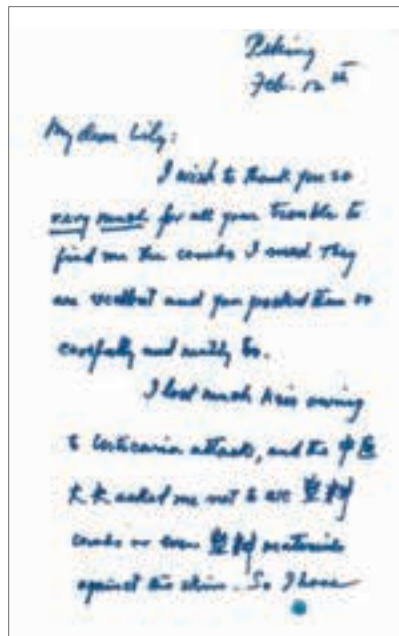 Peking
Feb. 12th
My dear Lily:
I wish to thank you so
very much for all your trouble to
find me the combs I need They
are excellent and you packed them so
carefully and neatly too.
I lost much hair owing
to Urticaria attacks, and the 中医
大夫 asked me not to use 塑料
combs or even 塑料 materials
against the skin. So I have